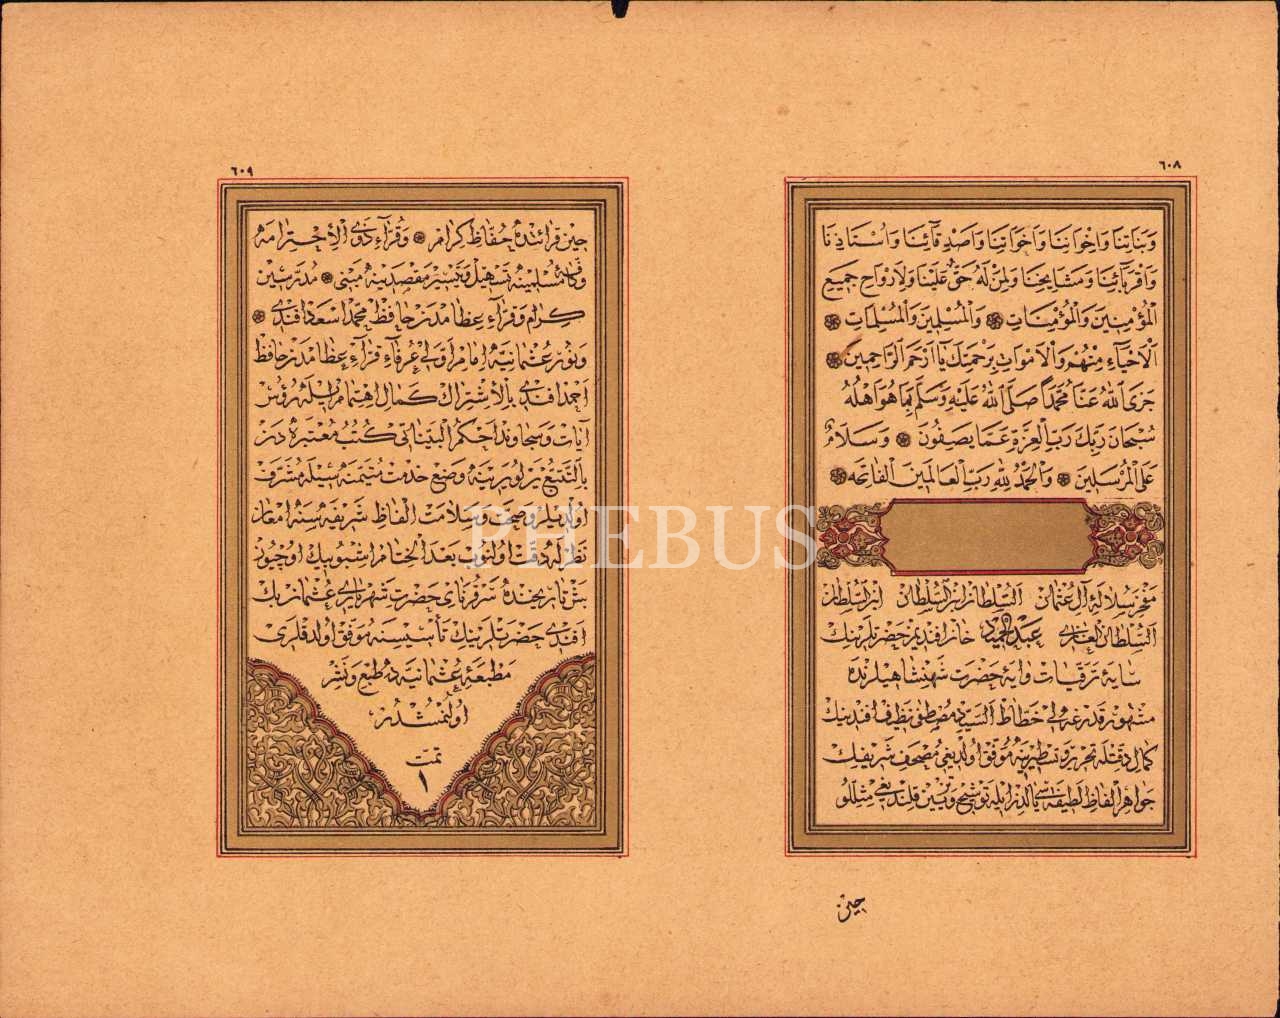 ٦٠٨
وَبَنَاتِنَا وَاِخْوَانِنَا وَاَخَوَاتِنَا وَاَصْدِقَآئِنَا وَاُسْتَاذِنَا
وَاَقْرِبَآئِنَا وَمَشَايِخِنَا وَلِمَنْ لَهُ حَقٌّ عَلَيْنَا وَلِاَرْوَاحِ جَمِيعِ
الْمُؤْمِنِينَ وَالْمُؤْمِنَاتِ ❁ وَالْمُسْلِمِينَ وَالْمُسْلِمَاتِ ❁
اَلْاَحْيَآءِ مِنْهُمْ وَالْاَمْوَاتِ بِرَحْمَتِكَ يَآ اَرْحَمَ الرَّاحِمِينَ ❁
جَزَى اللّٰهُ عَنَّا مُحَمَّدًا صَلَّى اللّٰهُ عَلَيْهِ وَسَلَّمَ بِمَا هُوَ اَهْلُهُ
سُبْحَانَ رَبِّكَ رَبِّ الْعِزَّةِ عَمَّا يَصِفُونَ ❁ وَسَلَامٌ
عَلَى الْمُرْسَلِينَ ❁ وَالْحَمْدُ لِلّٰهِ رَبِّ الْعَالَمِينَ الْفَاتِحَه ❁
مفخر سلالۀ آل عثمان السلطان ابن السلطان ابن السلطان
السلطان الغازى عبد الحميد خان افنديمز حضرتلرينك
سايۀ ترقيات وايۀ حضرت شهنشاهيلرنده
مشهور قدرغه لى خطاط السيد مصطفى نظيف افندينك
كمال دقتله تحرير و تسطيرينه موفق اولديغى مصحف شريفك
جواهر الفاظ لطيفه سى ايله توشيح و تزيين قلنديغى مثللو
حين
٦٠٩
حين قرائنده حفاظ كرام ❁ وقراء ذوى الاحترامه
وكافۀ مسلمينه تسهيل و تيسير مقصدينه مبنى ❁ مدرسين
كرام وقراء عظامدن حافظ محمد اسعد افندى ❁
ونور عثمانيه امام اولى عرفاء قراء عظامدن حافظ
احمد افندى بالاشتراك كمال اهتمام ايله رؤس
آيات وسجاوند احكم البيناتى كتب معتبره دن
بالتتبع يرلويرينه وضع خدمت متيمنه سيله مشرف
اولديلر وصحت وسلامت الفاظ شريفه سنه امعان
نظر له دقت اولنوب بعد الختام اشبو بيك اوچيوز
تاريخنده سرقرناى حضرت شهريارى عثمان بك
افندى حضرتلرينك تأسيسنه موفق اولدقلرى
مطبعۀ عثمانيه ده طبع ونشر
اولنمشدر
تمت
١
PHEBUS